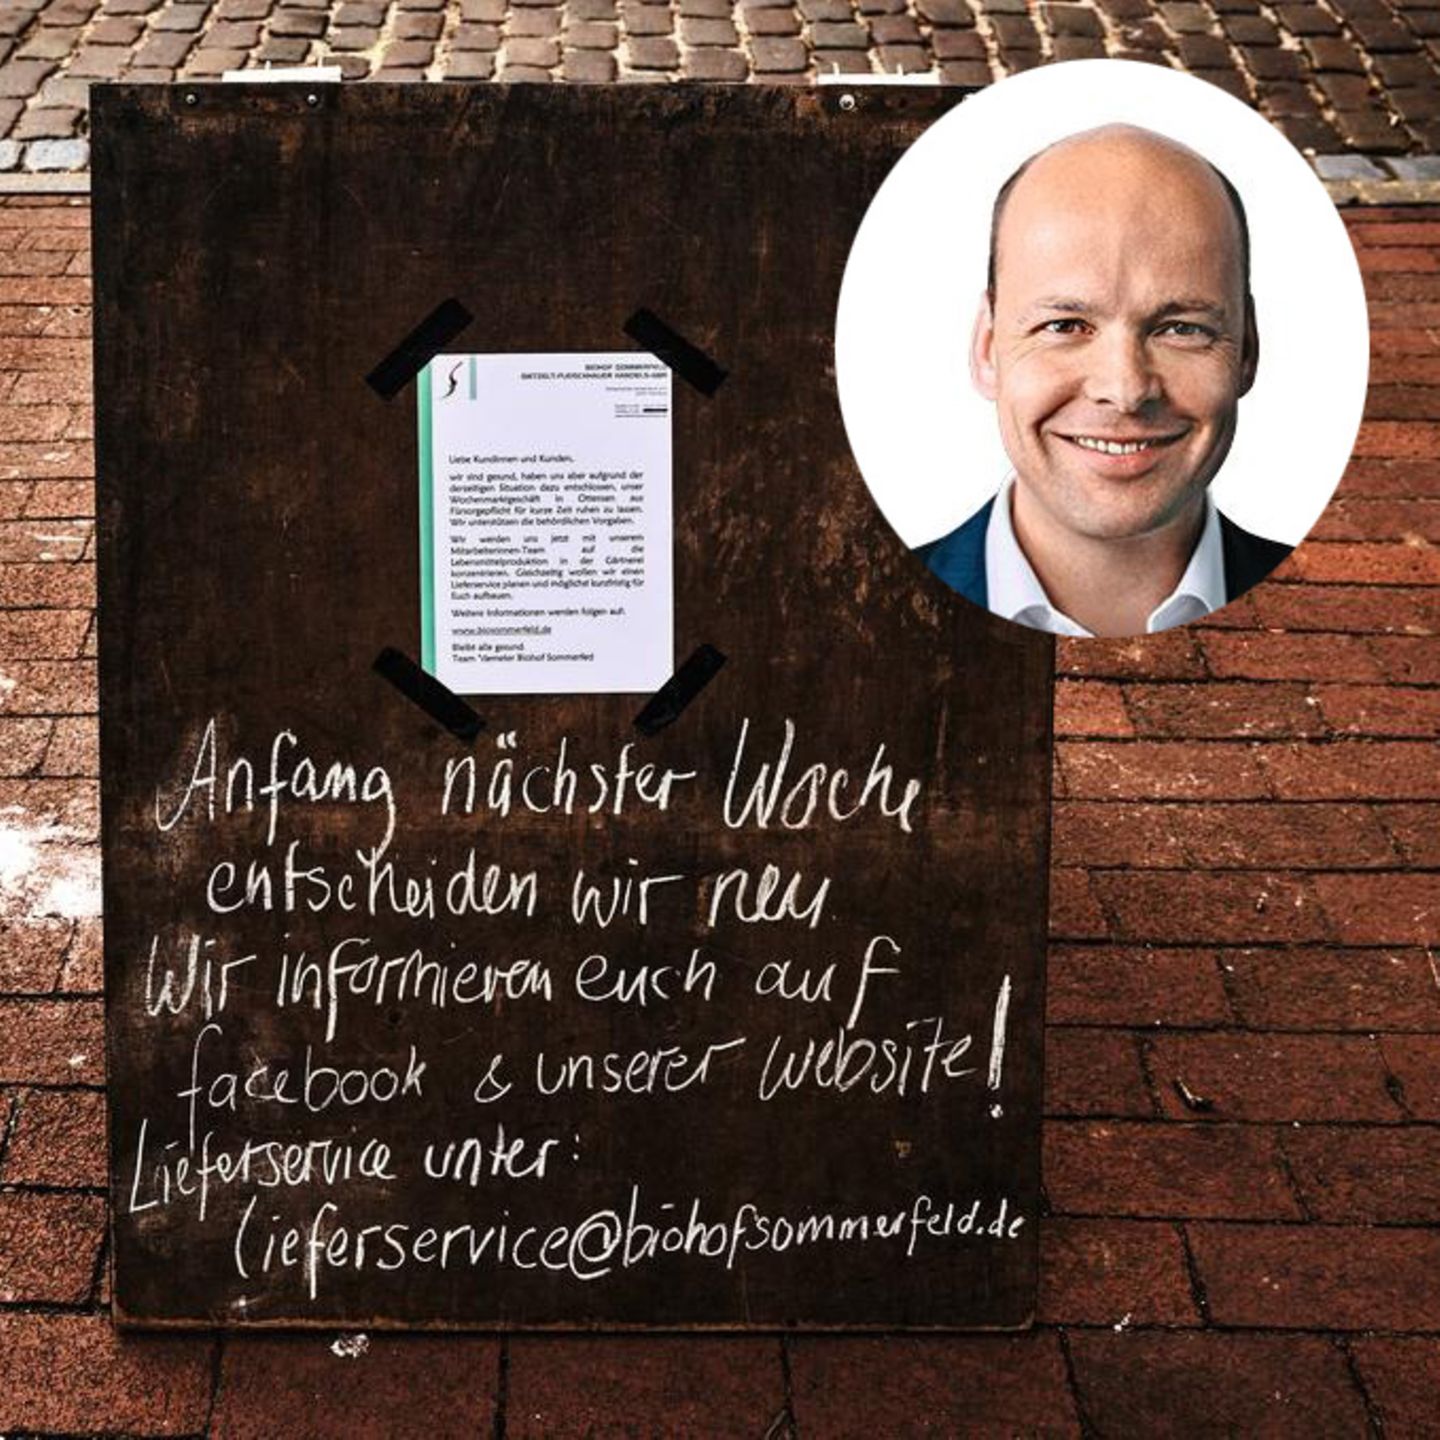 BIOHOF SOMMERFELD
Liebe Kundinnen und Kunden,
wir sind gesund, haben uns aber aufgrund der
derzeitigen Situation dazu entschlossen, unser
Wochenmarktgeschäft in Ottensen aus
Fürsorgepflicht für kurze Zeit ruhen zu lassen.
Wir unterstützen die behördlichen Vorgaben.
Wir werden uns jetzt mit unserem
Mitarbeiterinnen-Team auf die
Lebensmittelproduktion in der Gärtnerei
konzentrieren. Gleichzeitig wollen wir einen
Lieferservice planen und möglichst kurzfristig für
Euch aufbauen.
Weitere Informationen werden folgen auf:
www.biosommerfeld.de
Bleibt alle gesund
Team Biohof Sommerfeld
Anfang nächster Woche
entscheiden wir neu.
Wir informieren euch auf
facebook & unserer website!
Lieferservice unter:
lieferservice@biohofsommerfeld.de